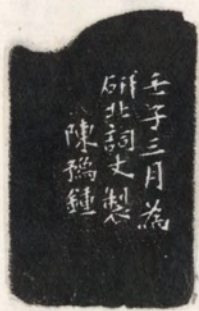 壬子三月為
硏北詞丈製
陳鴻鍾